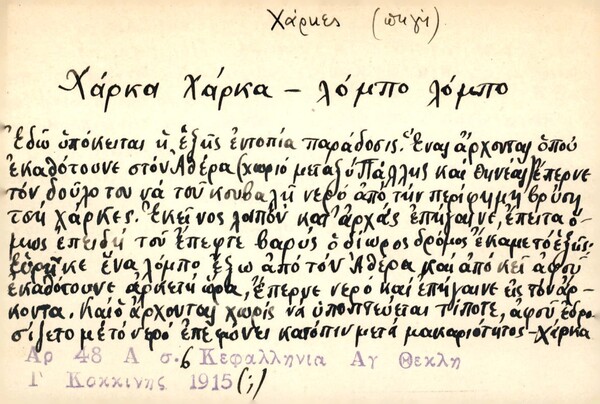 Χάρκες (πηγή)
Χάρκα Χάρκα – λόμπο λόμπο
Ἐδῶ ὑπόκειται ἡ ἑξῆς ἐντοπία παράδοσις. Ἕνας ἄρχοντας ὁποῦ
ἐκαθότουνε στὸν Ἀθέρα (χωριὸ μεταξὺ Πάλλης καὶ Θηνέας) ἔπερνε
τὸν δοῦλο του νὰ τοῦ κουβαλῆ νερὸ ἀπὸ τὴν περίφημη βρύση
τσῆ Χάρκες. Ἐκεῖνος λοιπὸν κατ' ἀρχὰς ἐπήγαινε, ἔπειτα ὅ-
μως ἐπειδὴ τοῦ ἔπεφτε βαρὺς ὁ δίωρος δρόμος ἔκαμε τὸ ἑξῆς·
εὑρῆκε ἕνα λόμπο ἔξω ἀπὸ τὸν Ἀθέρα καὶ ἀπὸ κεῖ ἀφοῦ
ἐκαθότουνε ἀρκετὴ ὥρα, ἔπερνε νερὸ καὶ ἐπήγαινε εἰς τὸν ἄρ-
κοντα. Καὶ ὁ ἄρχοντας χωρὶς νὰ ὑποπτεύεται τίποτε, ἀφοῦ ἐδρο-
σίζετο μὲ τὸ νερὸ ἐπεφώνει κατόπιν μετὰ μακαριότητος – Χάρκα
Αρ 48 Α σ. 6 Κεφαλληνια Αγ Θεκλη
Γ Κοκκινης 1915 (;)